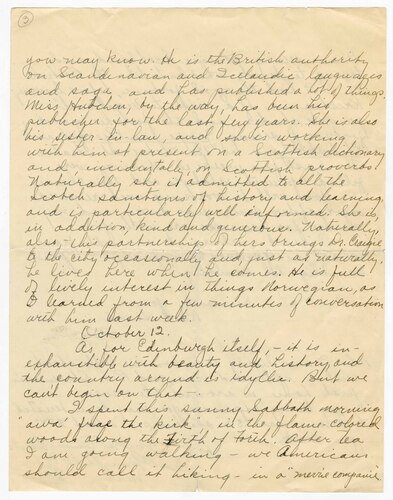 3
you may know. He is the British authority
on Scandinavian and Icelandic languages
and saga, and has published a lot of things.
Miss Hutchen, by the way, has been his
publisher for the last few years. She is also
his sister-in-law, and she is working
with him at present on a Scottish dictionary
and, incidentally, on Scottish proverbs.
Naturally she is admitted to all the
Scotch sanctums of history and learning,
and is particularly well informed. She is,
in addition, kind and generous. Naturally,
also, this partnership of hers brings Dr.
to the city occasionally and, just as naturally,
he lives here when he comes. He is full
of lively interest in things Norwegian, as
I learned from a few minutes of conversation
with him last week.
October 12.
As for Edinburgh itself, - it is in-
exhaustible with beauty and history and
the country around is idyllic. But we
can't begin on that -
I spent this sunny Sabbath morning
"awa' frae the kirk" in the flame-colored
woods along the Firth of Forth. After tea
I am going walking - we Americans
should call it hiking - in a "